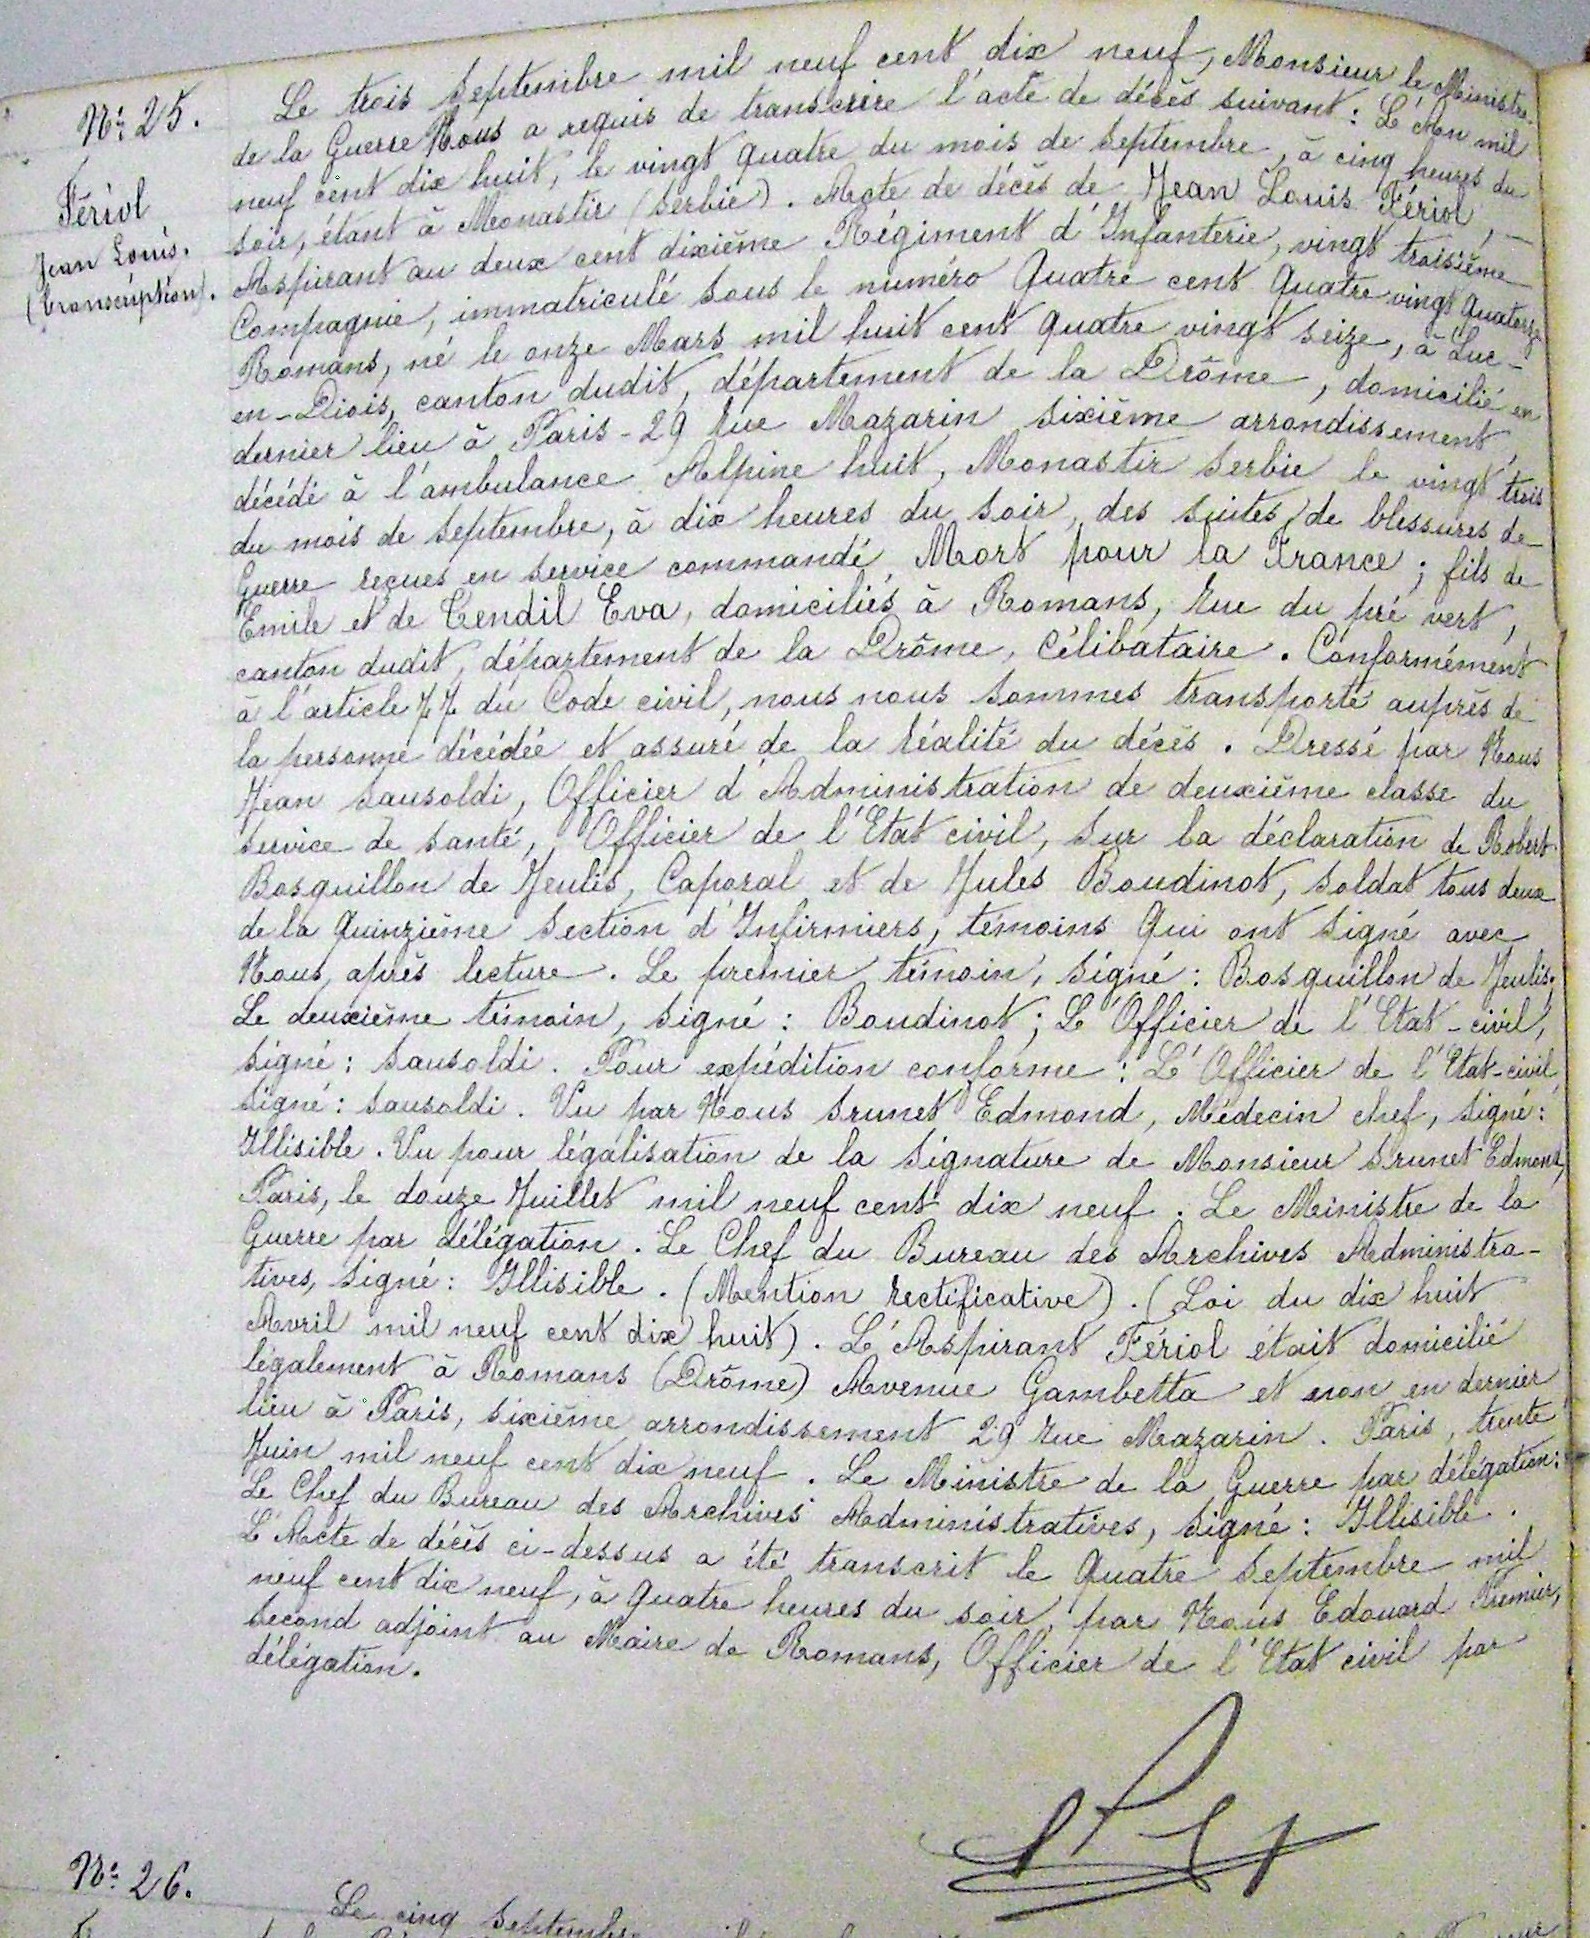 Nº 25.
Fériol
Jean Louis.
(transcription).
Le trois Septembre mil neuf cent dix neuf, Monsieur le Ministre
de la Guerre Nous a requis de transcrire l'acte de décès suivant : L'An mil
neuf cent dix huit, le vingt quatre du mois de Septembre, à cinq heures du
soir, étant à Monastir (Serbie). Acte de décès de Jean Louis Fériol,
Aspirant au deux cent dixième Régiment d'Infanterie, vingt troisième
Compagnie, immatriculé sous le numéro Quatre cent Quatre vingt Quatorze
Romans, né le onze Mars mil huit cent quatre vingt seize, à Luc-
en-Diois, canton dudit, département de la Drôme, domicilié en
dernier lieu à Paris - 29 rue Mazarin sixième arrondissement,
décédé à l'ambulance Alpine huit, Monastir Serbie le vingt trois
du mois de Septembre, à dix heures du soir, des suites de blessures de
Guerre reçues en service commandé Mort pour la France ; fils de
Emile et de Tendil Eva, domiciliés à Romans, rue du pré vert,
canton dudit, département de la Drôme, Célibataire. Conformément
à l'article 77 du Code civil, nous nous sommes transporté auprès de
la personne décédée et assuré de la réalité du décès. Dressé par Nous
Jean Sausoldi, Officier d'Administration de deuxième classe du
service de santé, Officier de l'Etat civil, sur la déclaration de Robert
Bosquillon de Jenlis, Caporal et de Jules Boudinot, soldat tous deux
de la quinzième Section d'Infirmiers, témoins Qui ont signé avec
Nous, après lecture. Le premier témoin, signé : Bosquillon de Jenlis.
Le deuxième témoin, signé : Boudinot ; L'Officier de l'Etat-civil,
signé : Sausoldi. Pour expédition conforme : L'Officier de l'Etat-civil
signé : Sausoldi. Vu par Nous Brunet Edmond, Médecin chef, signé :
Illisible. Vu pour légalisation de la signature de Monsieur Brunet Edmond,
Paris, le douze Juillet mil neuf cent dix neuf. Le Ministre de la
Guerre par délégation. Le Chef du Bureau des Archives Administra-
tives, signé : Illisible. (Mention rectificative). (Loi du dix huit
Avril mil neuf cent dix huit). L'Aspirant Fériol était domicilié
légalement à Romans (Drôme) Avenue Gambetta et non en dernier
lieu à Paris, sixième arrondissement 29 rue Mazarin. Paris, trente
Juin mil neuf cent dix neuf. Le Ministre de la Guerre par délégation :
Le Chef du Bureau des Archives Administratives, signé : Illisible.
L'Acte de décès ci-dessus a été transcrit le Quatre Septembre mil
neuf cent dix neuf, à quatre heures du soir, par Nous Edouard Premier,
second adjoint au Maire de Romans, Officier de l'Etat civil par
délégation.
Nº 26.
Le cinq Septembre